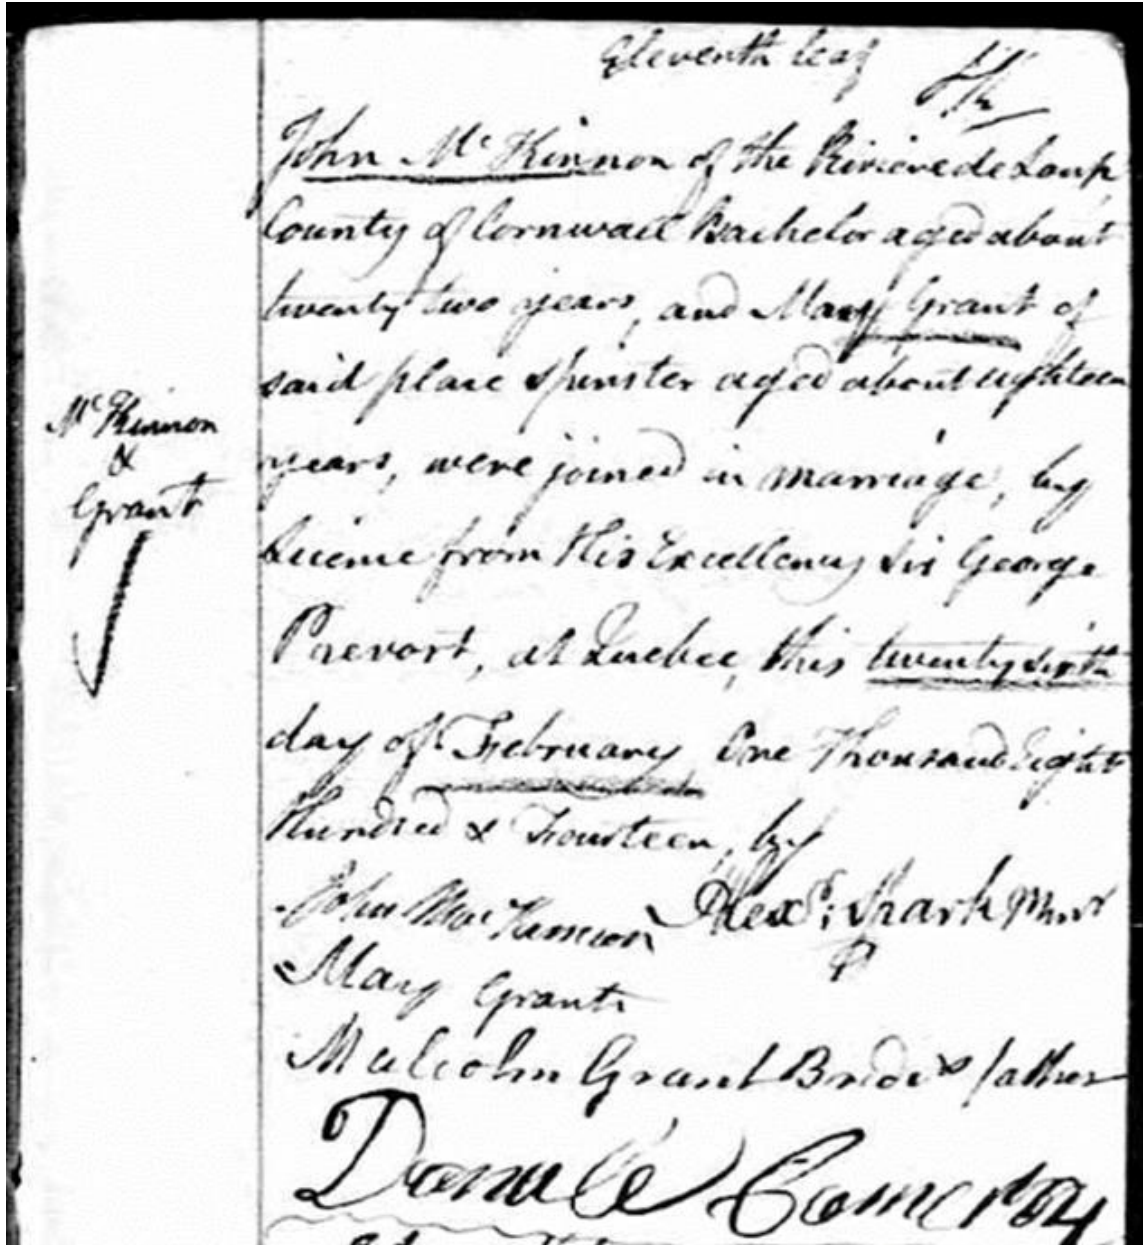 Eleventh leaf
John Mc Kinnon of the Riviere de Loup
County of Cornwall Bachelor aged about
twenty two years, and Mary Grant of
said place Spinster aged about eighteen
Mc Kinnon
&
Grant
years, were joined in marriage, by
License from His Excellency Sir George
Prevost, at Quebec, this twenty sixth
day of February One Thousand Eight
Hundred & Fourteen, by
John MacKinnon Alexr. Spark Minr
Mary Grant
Malcolm Grant Brides father
Donald